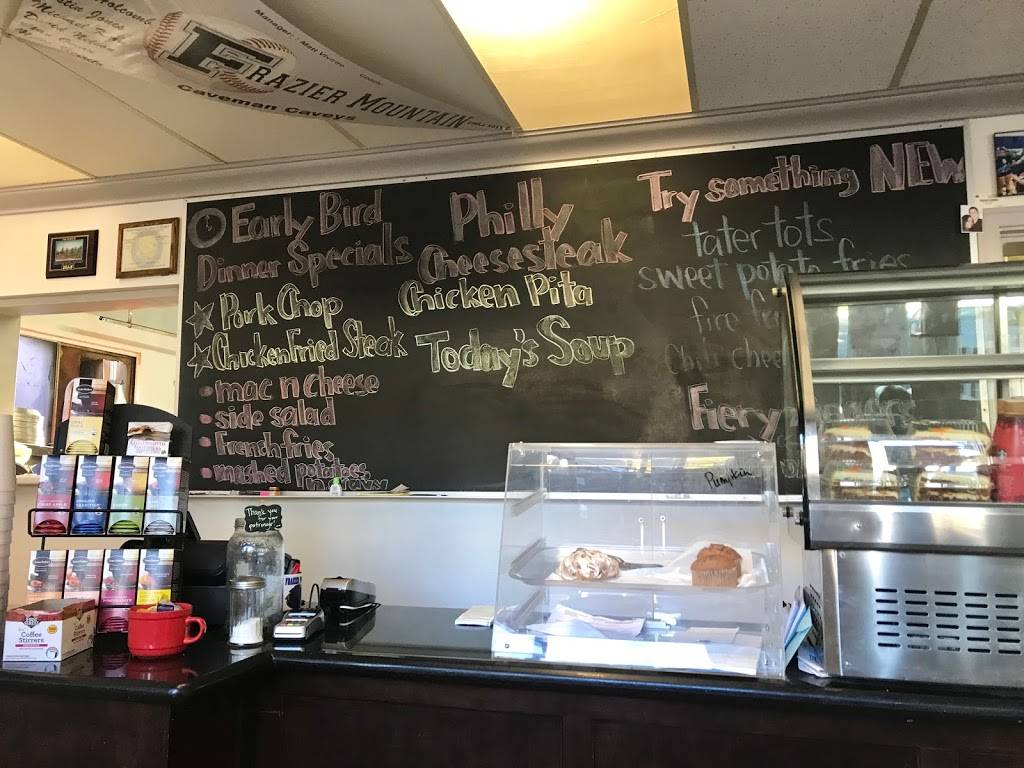 Holcomb
Manager: Matt
FRAZIER MOUNTAIN
Caveman Caveys
Early Bird
Dinner Specials
Pork Chop
Chicken Fried Steak
mac n cheese
side salad
French fries
mashed potatoes
Philly
Cheesesteak
Chicken Pita
Today's Soup
Try something NEW
tater tots
sweet potato fries
fire
Chili chee
Fiery
Pumpkin
Thank you
for your
patronage!
Coffee
Stirrers